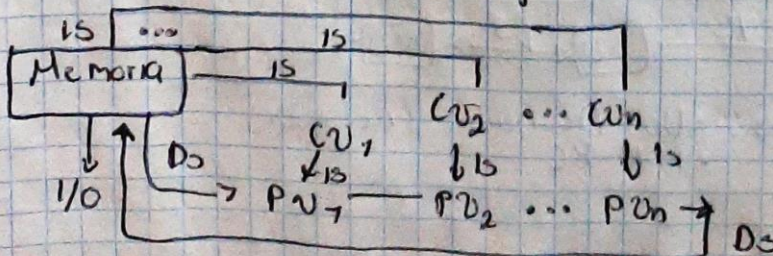 IS ... IS
Memoria IS
CU1 CU2 ... CUn
I/O DS IS IS IS
PU1 PU2 ... PUn
DS